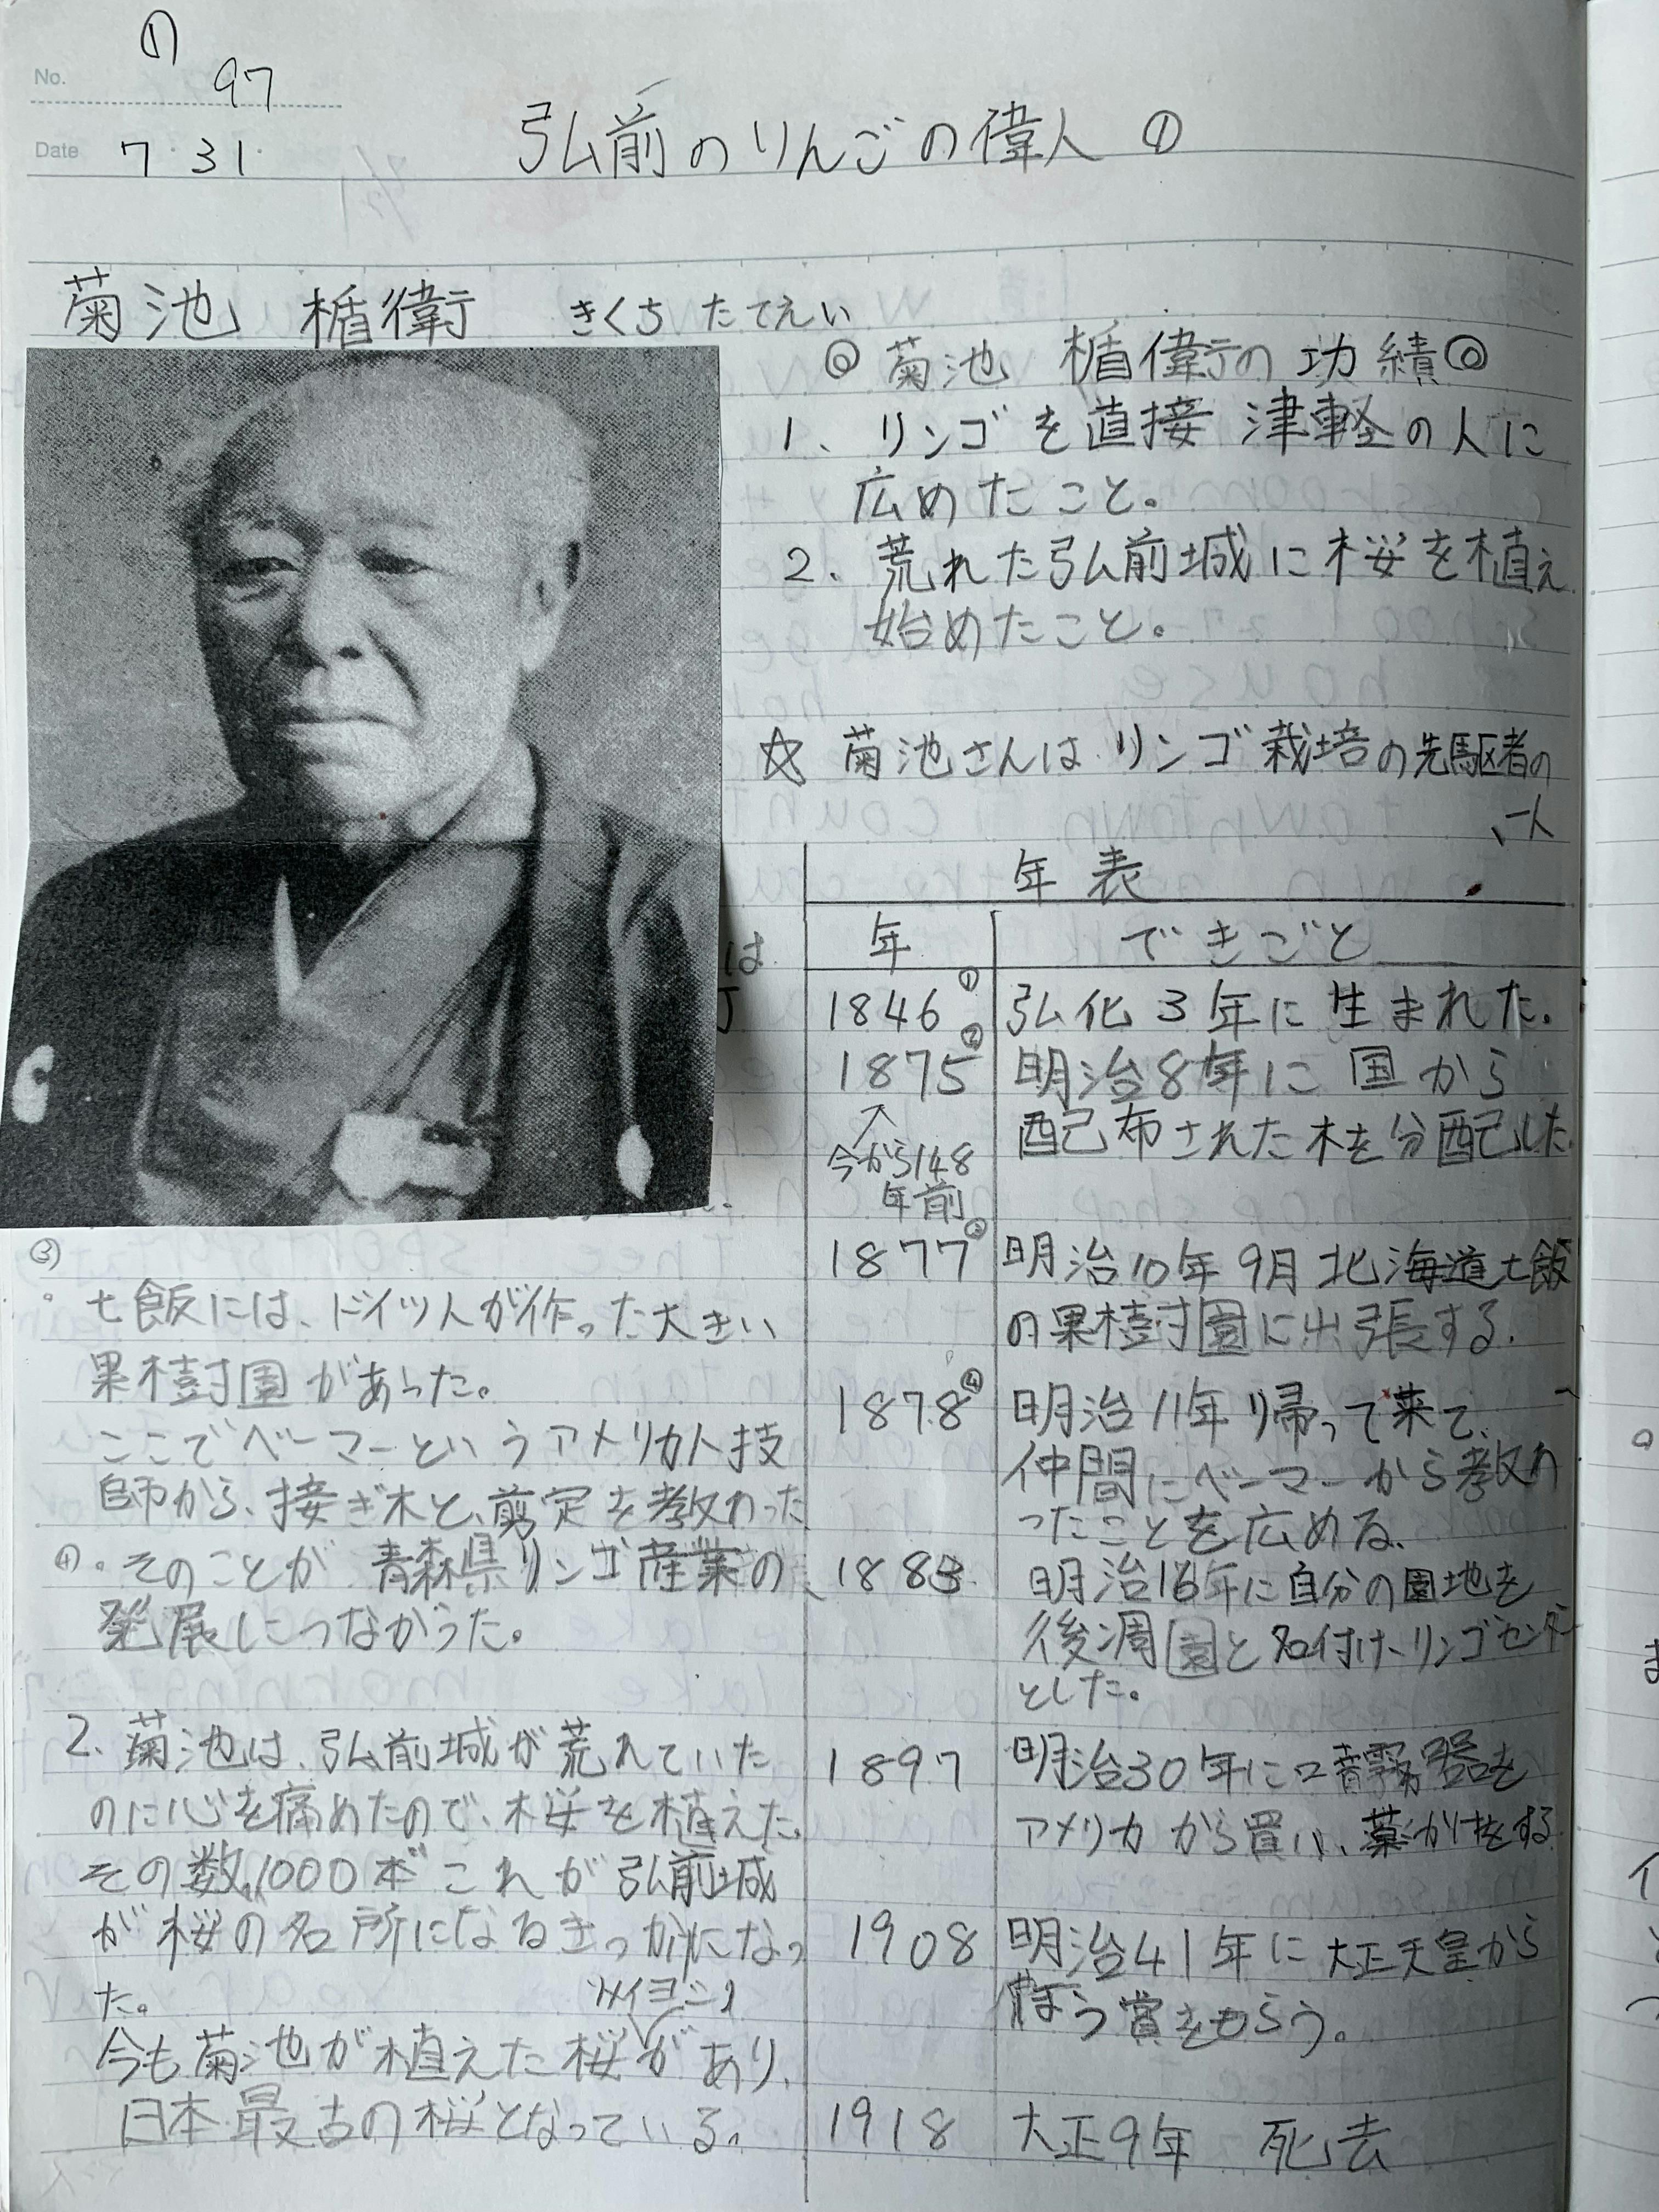 ①
No. 97
Date 7・31・
弘前のりんごの偉人 ①
菊池 楯衛 きくち たてえい
◎菊池 楯衛の功績◎
1、リンゴを直接 津軽の人に
広めたこと。
2、荒れた弘前城に桜を植え
始めたこと。
☆菊池さんはリンゴ栽培の先駆者の
一人
年表
年 できごと
1846① 弘化3年に生まれた。
1875② 明治8年に国から
配布された木を分配した
↑
今から148
年前
1877③ 明治10年9月北海道七飯
の果樹園に出張する。
1878④ 明治11年リ帰って来て、
仲間にベーマーから教わ
ったことを広める。
1883 明治16年に自分の園地を
後凋園と名付け、リンゴセンター
とした。
1897 明治30年に噴霧器を
アメリカから買い、薬かけをする
1908 明治41年に大正天皇から
ほう賞をもらう。
1918 大正9年 死去
は
③
・七飯には、ドイツ人が作った大きい
果樹園があった。
ここでベーマーというアメリカ人技
師から、接ぎ木と、剪定を教わった
④・そのことが青森県リンゴ産業の
発展につながった。
2、菊池は、弘前城が荒れていた
のに心を痛めたので、桜を植えた。
その数1000本これが弘前城
が桜の名所になるきっかけになっ
た。
ソメイヨシノ
今も菊池が植えた桜があり、
日本最古の桜となっている。